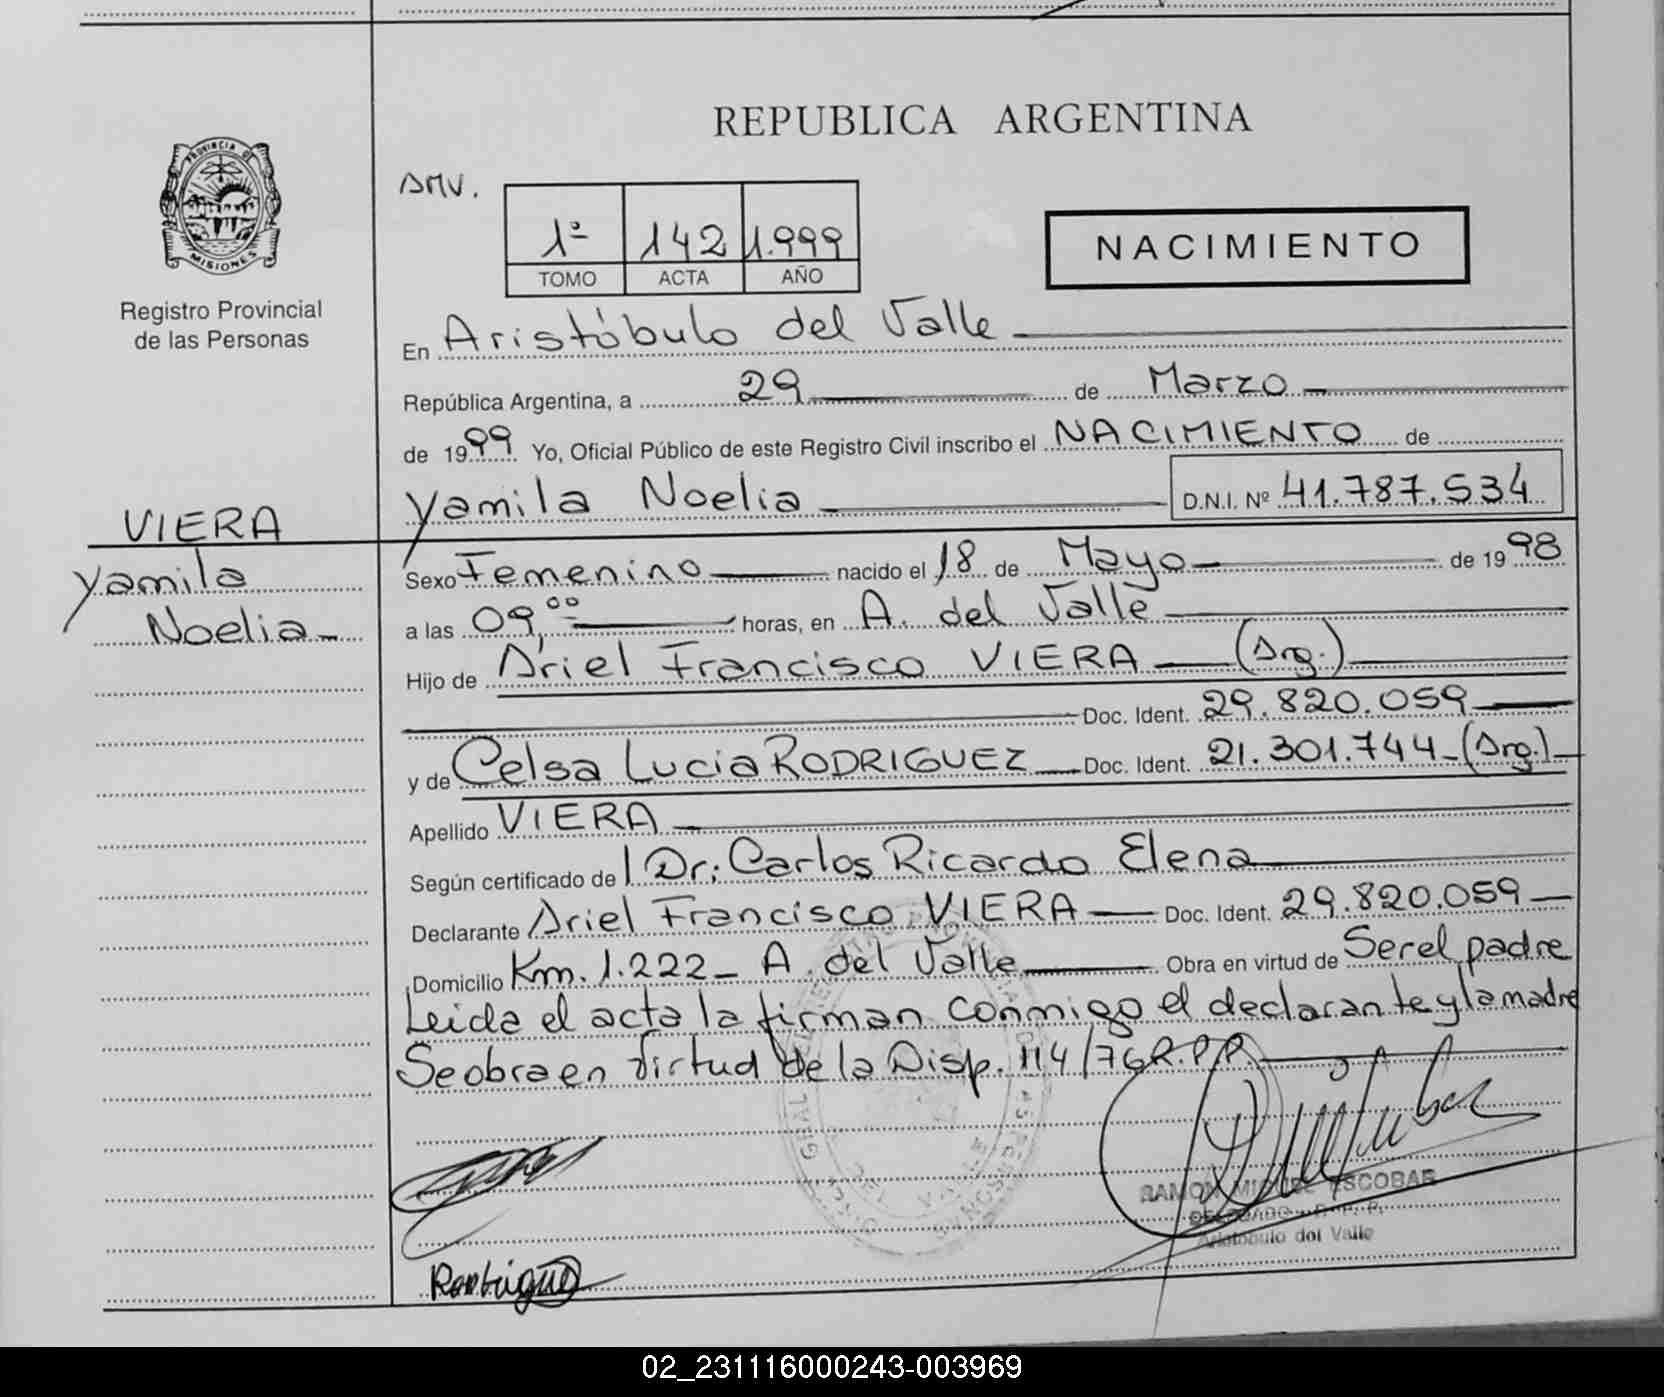 REPUBLICA ARGENTINA
PROVINCIA DE
MISIONES
Registro Provincial
de las Personas
AMV.
1º 142 1.999
TOMO ACTA AÑO
NACIMIENTO
En Aristóbulo del Valle
República Argentina, a 29 de Marzo
de 1999 Yo, Oficial Público de este Registro Civil inscribo el NACIMIENTO de
Yamila Noelia D.N.I. Nº 41.787.534
VIERA
Yamila
Noelia
Sexo Femenino nacido el 18 de Mayo de 1998
a las 09,00 horas, en A. del Valle
Hijo de Ariel Francisco VIERA (Arg.)
Doc. Ident. 29.820.059
y de Celsa Lucia RODRIGUEZ Doc. Ident. 21.301.744 (Arg.)
Apellido VIERA
Según certificado de Dr: Carlos Ricardo Elena
Declarante Ariel Francisco VIERA Doc. Ident. 29.820.059
Domicilio Km. 1.222 A. del Valle Obra en virtud de Ser el padre
Leida el acta la firman conmigo el declarante y la madre
Se obra en virtud de la Disp. 114/76 R.P.P.
RAMON MIGUEL ESCOBAR
DELEGADO R. P. P.
Aristobulo del Valle
Rodrigue
02_231116000243-003969